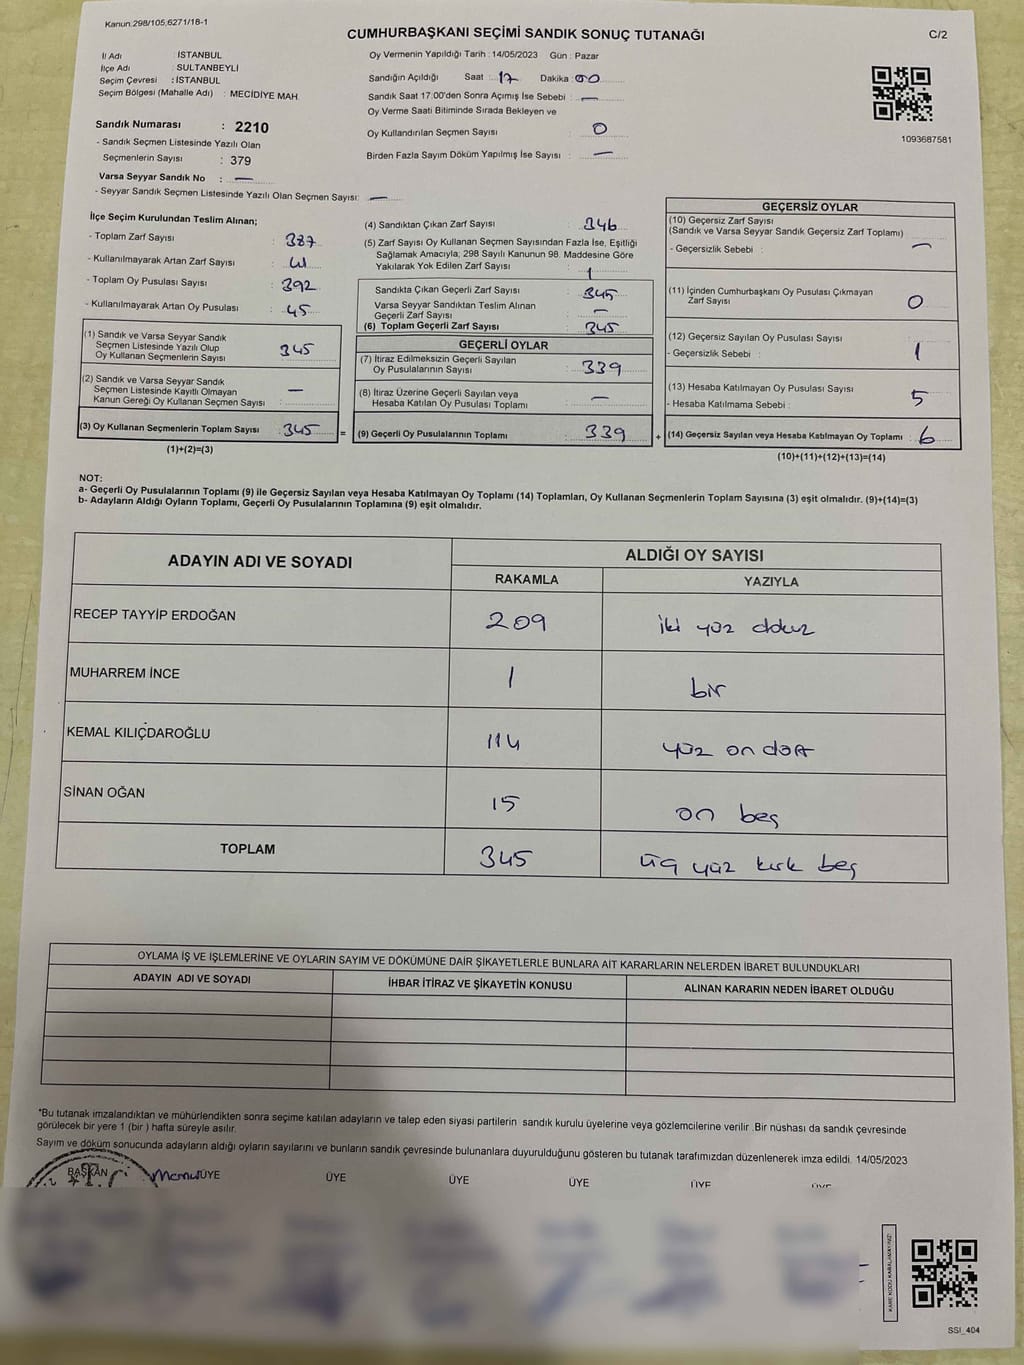 Kanun:298/105;6271/18-1
CUMHURBAŞKANI SEÇİMİ SANDIK SONUÇ TUTANAĞI
C/2
İl Adı : İSTANBUL
İlçe Adı : SULTANBEYLİ
Seçim Çevresi : İSTANBUL
Seçim Bölgesi (Mahalle Adı) : MECİDİYE MAH.
Sandık Numarası : 2210
- Sandık Seçmen Listesinde Yazılı Olan
Seçmenlerin Sayısı : 379
Varsa Seyyar Sandık No : —
- Seyyar Sandık Seçmen Listesinde Yazılı Olan Seçmen Sayısı: —
Oy Vermenin Yapıldığı Tarih : 14/05/2023 Gün : Pazar
Sandığın Açıldığı Saat : 17 Dakika : 00
Sandık Saat 17:00'den Sonra Açımış İse Sebebi : —
Oy Verme Saati Bitiminde Sırada Bekleyen ve
Oy Kullandırılan Seçmen Sayısı : 0
Birden Fazla Sayım Döküm Yapılmış İse Sayısı : —
1093687581
İlçe Seçim Kurulundan Teslim Alınan;
- Toplam Zarf Sayısı : 387
- Kullanılmayarak Artan Zarf Sayısı :
- Toplam Oy Pusulası Sayısı : 392
- Kullanılmayarak Artan Oy Pusulası : 45
(1) Sandık ve Varsa Seyyar Sandık
Seçmen Listesinde Yazılı Olup
Oy Kullanan Seçmenlerin Sayısı : 345
(2) Sandık ve Varsa Seyyar Sandık
Seçmen Listesinde Kayıtlı Olmayan
Kanun Gereği Oy Kullanan Seçmen Sayısı : —
(3) Oy Kullanan Seçmenlerin Toplam Sayısı : 345 =
(1)+(2)=(3)
(4) Sandıktan Çıkan Zarf Sayısı : 346
(5) Zarf Sayısı Oy Kullanan Seçmen Sayısından Fazla İse, Eşitliği
Sağlamak Amacıyla; 298 Sayılı Kanunun 98. Maddesine Göre
Yakılarak Yok Edilen Zarf Sayısı : 1
Sandıkta Çıkan Geçerli Zarf Sayısı : 345
Varsa Seyyar Sandıktan Teslim Alınan
Geçerli Zarf Sayısı : —
(6) Toplam Geçerli Zarf Sayısı : 345
GEÇERLİ OYLAR
(7) İtiraz Edilmeksizin Geçerli Sayılan
Oy Pusulalarının Sayısı : 339
(8) İtiraz Üzerine Geçerli Sayılan veya
Hesaba Katılan Oy Pusulası Toplamı : —
(9) Geçerli Oy Pusulalarının Toplamı : 339 +
GEÇERSİZ OYLAR
(10) Geçersiz Zarf Sayısı
(Sandık ve Varsa Seyyar Sandık Geçersiz Zarf Toplamı)
- Geçersizlik Sebebi : —
(11) İçinden Cumhurbaşkanı Oy Pusulası Çıkmayan
Zarf Sayısı 0
(12) Geçersiz Sayılan Oy Pusulası Sayısı
- Geçersizlik Sebebi : 1
(13) Hesaba Katılmayan Oy Pusulası Sayısı
- Hesaba Katılmama Sebebi : 5
(14) Geçersiz Sayılan veya Hesaba Katılmayan Oy Toplamı : 6
(10)+(11)+(12)+(13)=(14)
NOT:
a- Geçerli Oy Pusulalarının Toplamı (9) ile Geçersiz Sayılan veya Hesaba Katılmayan Oy Toplamı (14) Toplamları, Oy Kullanan Seçmenlerin Toplam Sayısına (3) eşit olmalıdır. (9)+(14)=(3)
b- Adayların Aldığı Oyların Toplamı, Geçerli Oy Pusulalarının Toplamına (9) eşit olmalıdır.
ADAYIN ADI VE SOYADI
ALDIĞI OY SAYISI
RAKAMLA YAZIYLA
RECEP TAYYİP ERDOĞAN 209 iki yüz dokuz
MUHARREM İNCE 1 bir
KEMAL KILIÇDAROĞLU 114 yüz on dört
SİNAN OĞAN 15 on beş
TOPLAM 345 üç yüz kırk beş
OYLAMA İŞ VE İŞLEMLERİNE VE OYLARIN SAYIM VE DÖKÜMÜNE DAİR ŞİKAYETLERLE BUNLARA AİT KARARLARIN NELERDEN İBARET BULUNDUKLARI
ADAYIN ADI VE SOYADI İHBAR İTİRAZ VE ŞİKAYETİN KONUSU ALINAN KARARIN NEDEN İBARET OLDUĞU
*Bu tutanak imzalandıktan ve mühürlendikten sonra seçime katılan adayların ve talep eden siyasi partilerin sandık kurulu üyelerine veya gözlemcilerine verilir .Bir nüshası da sandık çevresinde
görülecek bir yere 1 (bir ) hafta süreyle asılır.
Sayım ve döküm sonucunda adayların aldığı oyların sayılarını ve bunların sandık çevresinde bulunanlara duyurulduğunu gösteren bu tutanak tarafımızdan düzenlenerek imza edildi. 14/05/2023
BAŞKAN ÜYE ÜYE ÜYE ÜYE ÜYE ÜYE
KARE KODU KARALAMAYINIZ!
SSİ_404